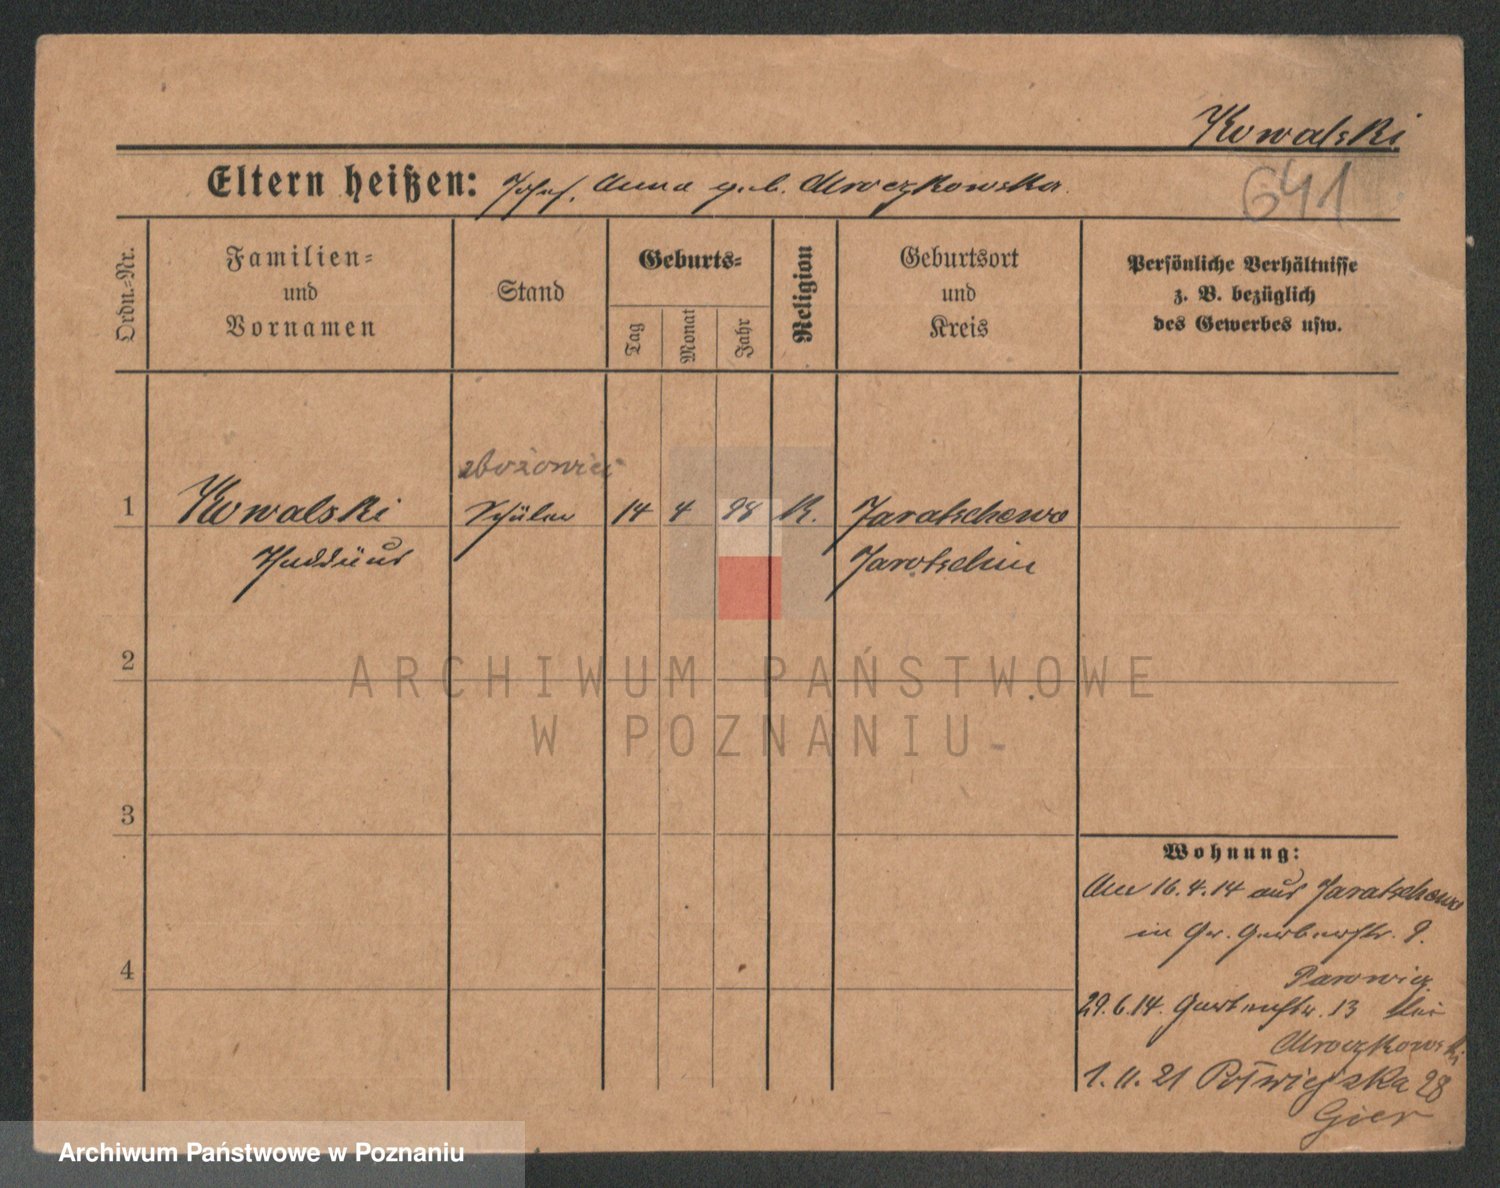 Kowalski
641
Eltern heißen: Josef, Anna geb. Mroczkowska.
Ordn.-Nr.
Familien-
und
Vornamen
Stand
Geburts-
Tag
Monat
Jahr
Religion
Geburtsort
und
Kreis
Persönliche Verhältnisse
z. B. bezüglich
des Gewerbes usw.
zbożowiec
1 Kowalski Schüler 14 4 98 K. Jaratschewo
Thaddäus Jarotschin
2
ARCHIWUM PAŃSTWOWE
W POZNANIU
3
Wohnung:
Am 16.4.14 aus Jaratschewo
in Gr. Gerberstr. 9.
4
29.6.14. Gerberstr. 13 bei
Mroczkowski
1.11.21 Półwiejska 28
Gier
Archiwum Państwowe w Poznaniu